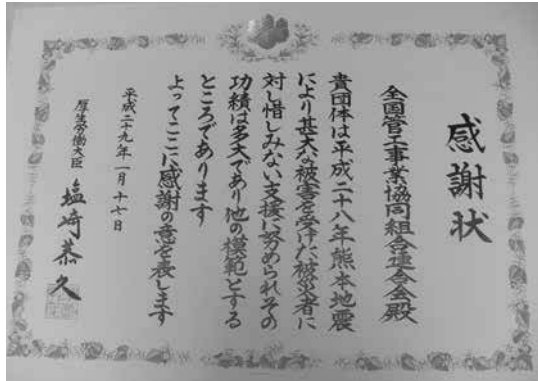 感謝状
全国管工事業協同組合連合会殿
貴団体は平成二十八年熊本地震
により甚大な被害を受けた被災者に
対し惜しみない支援に努められその
功績は多大であり他の模範とする
ところであります
よってここに感謝の意を表します
平成二十九年一月十七日
厚生労働大臣 塩崎恭久